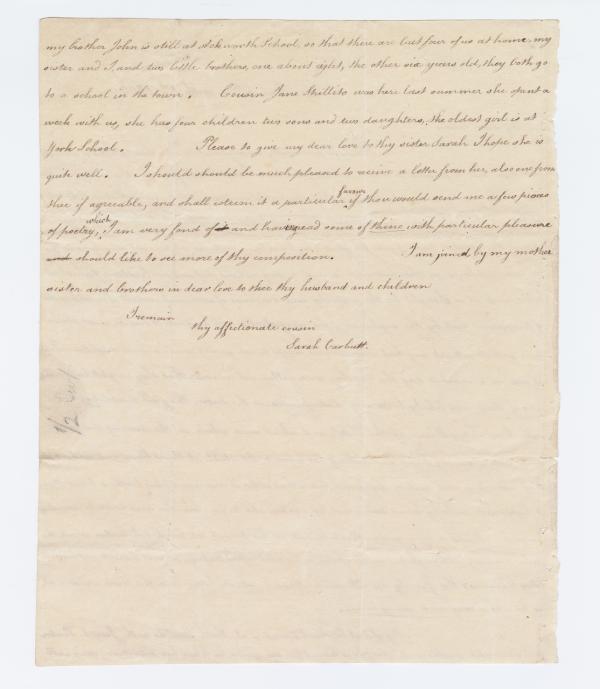 my brother John is still at Ackworth School, so that there are but four of us at home. my
sister and I, and two little brothers, one about eight, the other six years old, they both go
to a school in the town. Cousin Jane Shillito was here last summer she spent a
week with us, she has four children two sons and two daughters, the oldest girl is at
York School. Please to give my dear love to thy sister Sarah I hope she is
quite well. I should should be much pleased to receive a letter from her, also one from
thee if agreeable, and shall esteem it a particular favour if thou would send me a few pieces
of poetry, which I am very fond of and having read some of thine with particular pleasure
and should like to see more of thy composition. I am joined by my mother
sister and brothers in dear love to thee thy husband and children
I remain
thy affectionate cousin
Sarah Carbutt.